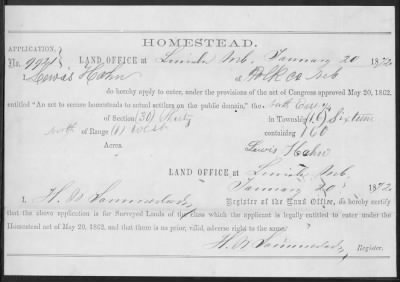 HOMESTEAD.
APPLICATION.
No. LAND OFFICE at Lincoln Neb, January 20 1872
I, Lewis Hahn of Polk Co Neb
do hereby apply to enter, under the provisions of the act of Congress approved May 20, 1862,
entitled "An act to secure homesteads to actual settlers on the public domain," the
of Section (30) Thirty in Township (16) Sixteen
north of Range (1) West containing 160
Acres.
Lewis Hahn
LAND OFFICE at Lincoln Neb.
January 20 1872
I, Register of the Land Office, do hereby certify
that the above application is for Surveyed Lands of the class which the applicant is legally entitled to enter under
the Homestead act of May 20, 1862, and that there is no prior, valid, adverse right to the same.
Register.